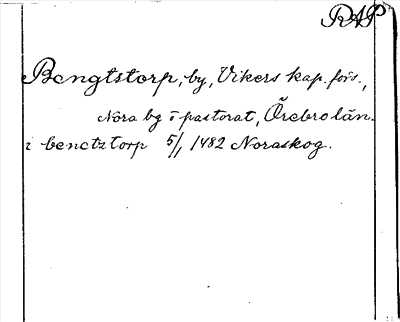 RAP
Bengtstorp, by, Vikers kap. förs.,
Nora bg o pastorat, Örebro län.
i benctztorp 5/1 1482 Noraskog.